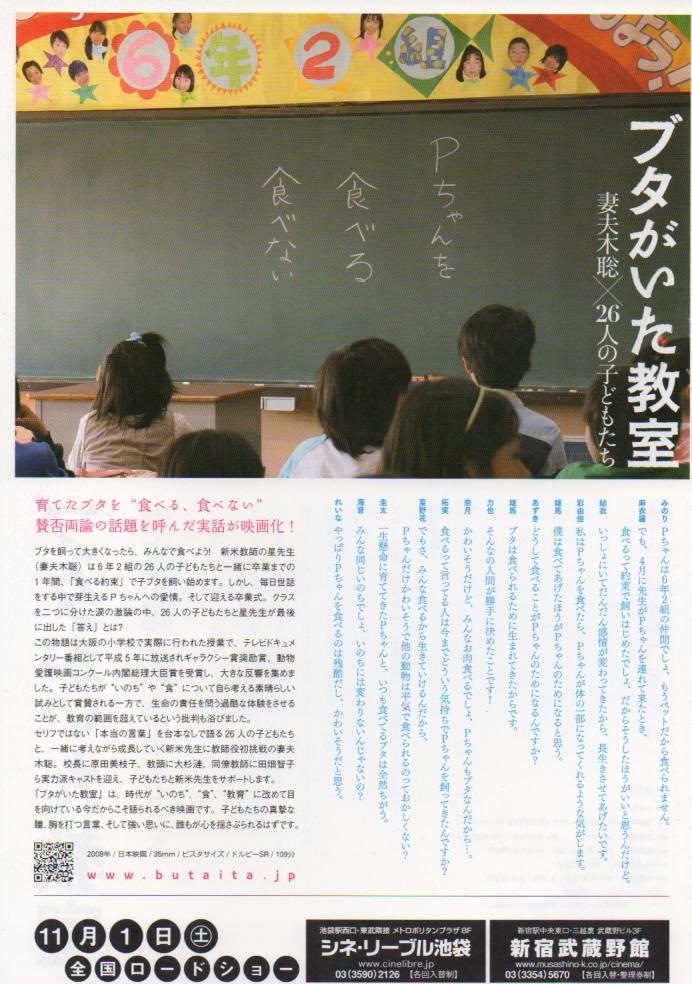 6年2組
しよう!
ブタがいた教室
妻夫木聡×26人の子どもたち
Pちゃんを
食べる
食べない
育てたブタを“食べる、食べない”
賛否両論の話題を呼んだ実話が映画化！
ブタを飼って大きくなったら、みんなで食べよう! 新米教師の星先生
(妻夫木聡)は6年2組の26人の子どもたちと一緒に卒業までの
1年間、「食べる約束」で子ブタを飼い始めます。しかし、毎日世話
をする中で芽生えるPちゃんへの愛情。そして迎える卒業式。クラス
を二つに分けた涙の激論の中、26人の子どもたちと星先生が最後
に出した「答え」とは?
この物語は大阪の小学校で実際に行われた授業で、テレビドキュメ
ンタリー番組として平成5年に放送されギャラクシー賞奨励賞、動物
愛護映画コンクール内閣総理大臣賞を受賞し、大きな反響を集めま
した。子どもたちが“いのち”や“食”について自ら考える素晴らしい
試みとして賞賛される一方で、生命の責任を問う過酷な体験をさせる
ことが、教育の範囲を超えているという批判も浴びました。
セリフではない「本当の言葉」を台本なしで語る26人の子どもたち
と、一緒に考えながら成長していく新米先生に教師役初挑戦の妻夫
木聡。校長に原田美枝子、教頭に大杉漣、同僚教師に田畑智子
ら実力派キャストを迎え、子どもたちと新米先生をサポートします。
「ブタがいた教室」は、時代が“いのち”、“食”、“教育”に改めて目
を向けている今だからこそ語られるべき映画です。子どもたちの真摯な
瞳、胸を打つ言葉、そして強い思いに、誰もが心を揺さぶられるはずです。
みのり Pちゃんは6年2組の仲間でしょ、もうペットだから食べられません。
麻衣羅 でも、4月に先生がPちゃんを連れて来たとき、
食べるって約束で飼いはじめたでしょ。だからそうしたほうがいいと思うんだけど。
結衣 いっしょにいてだんだん感情が変わってきたから、長生きさせてあげたいです。
彩由佳 私はPちゃんを食べたら、Pちゃんが体の一部になってくれるような気がします。
雄馬 僕は食べてあげたほうがPちゃんのためになると思う。
あずき どうして食べることがPちゃんのためになるんですか?
雄馬 ブタは食べられるために生まれてきたからです。
力也 そんなの人間が勝手に決めたことです!
奈月 かわいそうだけど、みんなお肉食べるでしょ、Pちゃんもブタなんだから…。
拓実 食べるって言ってる人は今までどういう気持ちでPちゃんを飼ってきたんですか?
菜野花 でもさ、みんな食べるから生きていけるんだから、
Pちゃんだけかわいそうで他の動物は平気で食べられるのっておかしくない?
圭太 一生懸命に育ててきたPちゃんと、いつも食べてるブタは全然ちがう。
海音 みんな同じいのちでしょ、いのちには変わりないんじゃないの?
れいな やっぱりPちゃんを食べるのは残酷だし、かわいそうだと思う。
2008年/日本映画/35mm/ビスタサイズ/ドルビーSR/109分
www.butaita.jp
11月1日(土)
全国ロードショー
池袋駅西口・東武隣接 メトロポリタンプラザ8F
シネ・リーブル池袋
www.cinelibre.jp
03(3590)2126 【各回入替制】
新宿駅中央東口・三越裏 武蔵野ビル3F
新宿武蔵野館
www.musashino-k.co.jp/cinema/
03(3354)5670 【各回入替・整理券制】